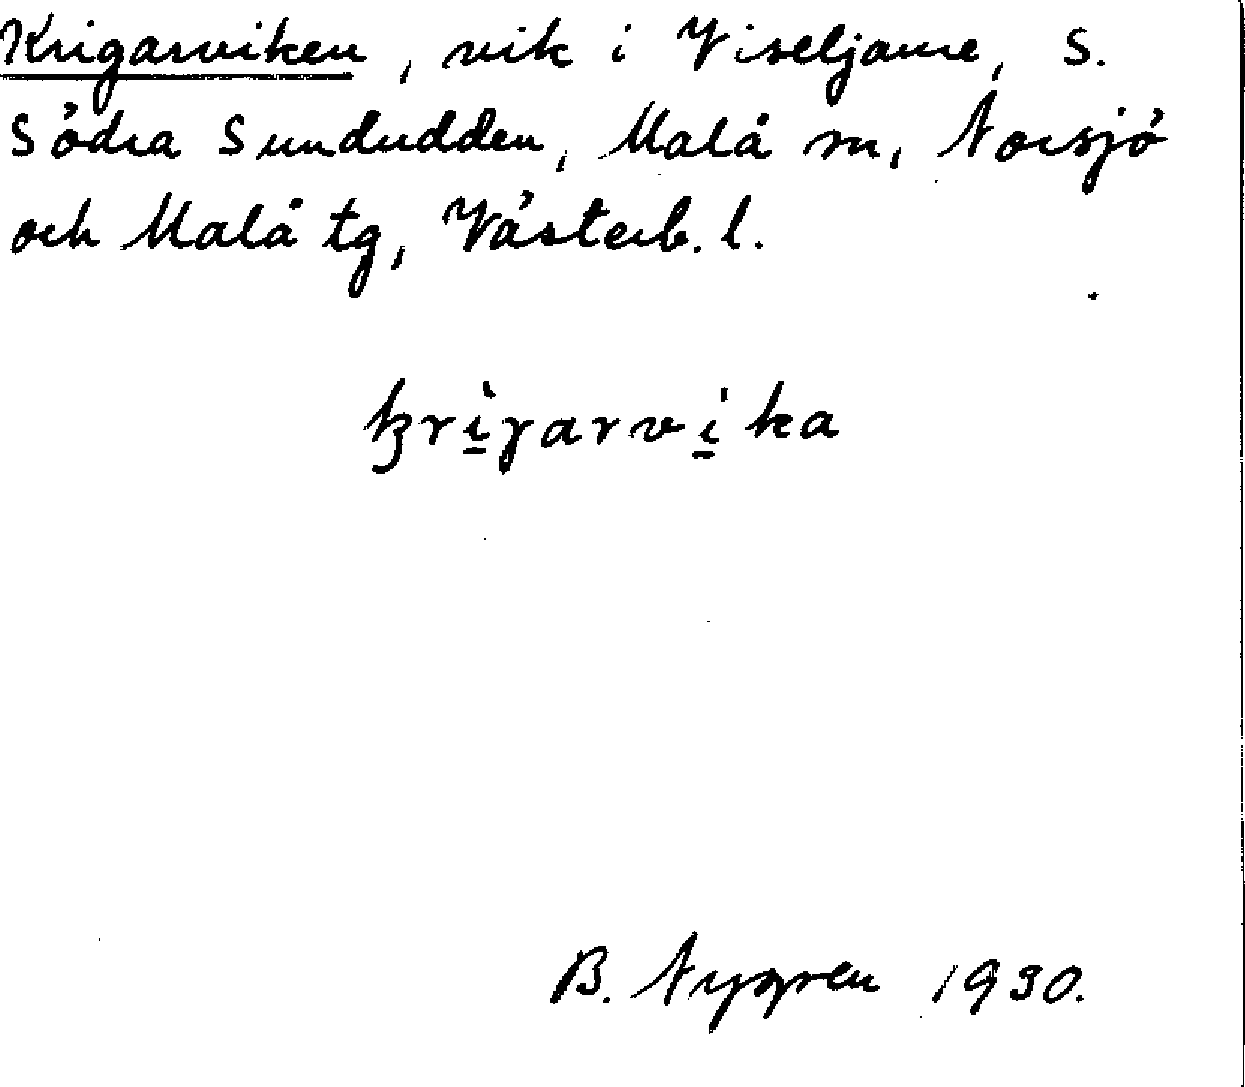 Krigarviken, vik i Viseljaure, S.
Södra Sundudden, Malå sn, Norsjö
och Malå tg, Västerb. l.
krì̱garví̱ka
B. Nygren 1930.